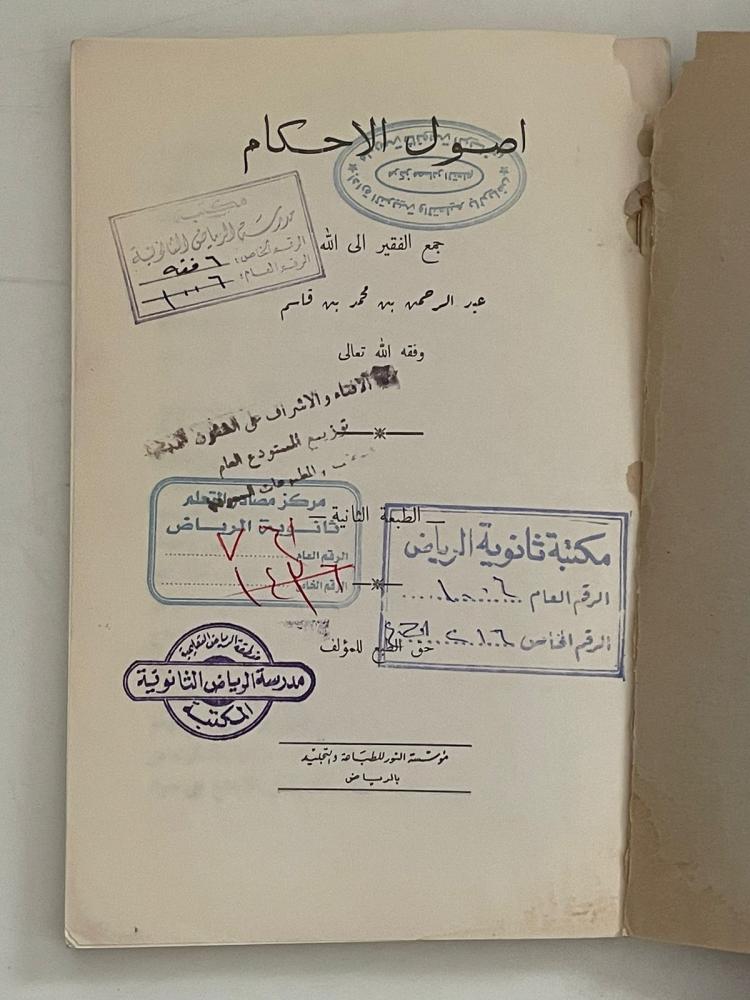 اصول الاحكام
ادارة التربية والتعليم بالرياض
مركز مصادر التعلم
مكتبة
مدرسة الرياض الثانوية
الرقم الخاص: ٦ فقه
الرقم العام: ١٠٠٦
جمع الفقير الى الله
عبد الرحمن بن محمد بن قاسم
وفقه الله تعالى
الافتاء والاشراف على الشؤون
توزيع المستودع العام
والمطبوعات
— الطبعة الثانية —
مركز مصادر التعلم
ثانوية الرياض
الرقم العام
الرقم الخاص
مكتبة ثانوية الرياض
الرقم العام
الرقم الخاص
حق الطبع للمؤلف
منطقة الرياض التعليمية
مدرسة الرياض الثانوية
المكتبة
مؤسسة النور للطباعة والتجليد
بالرياض